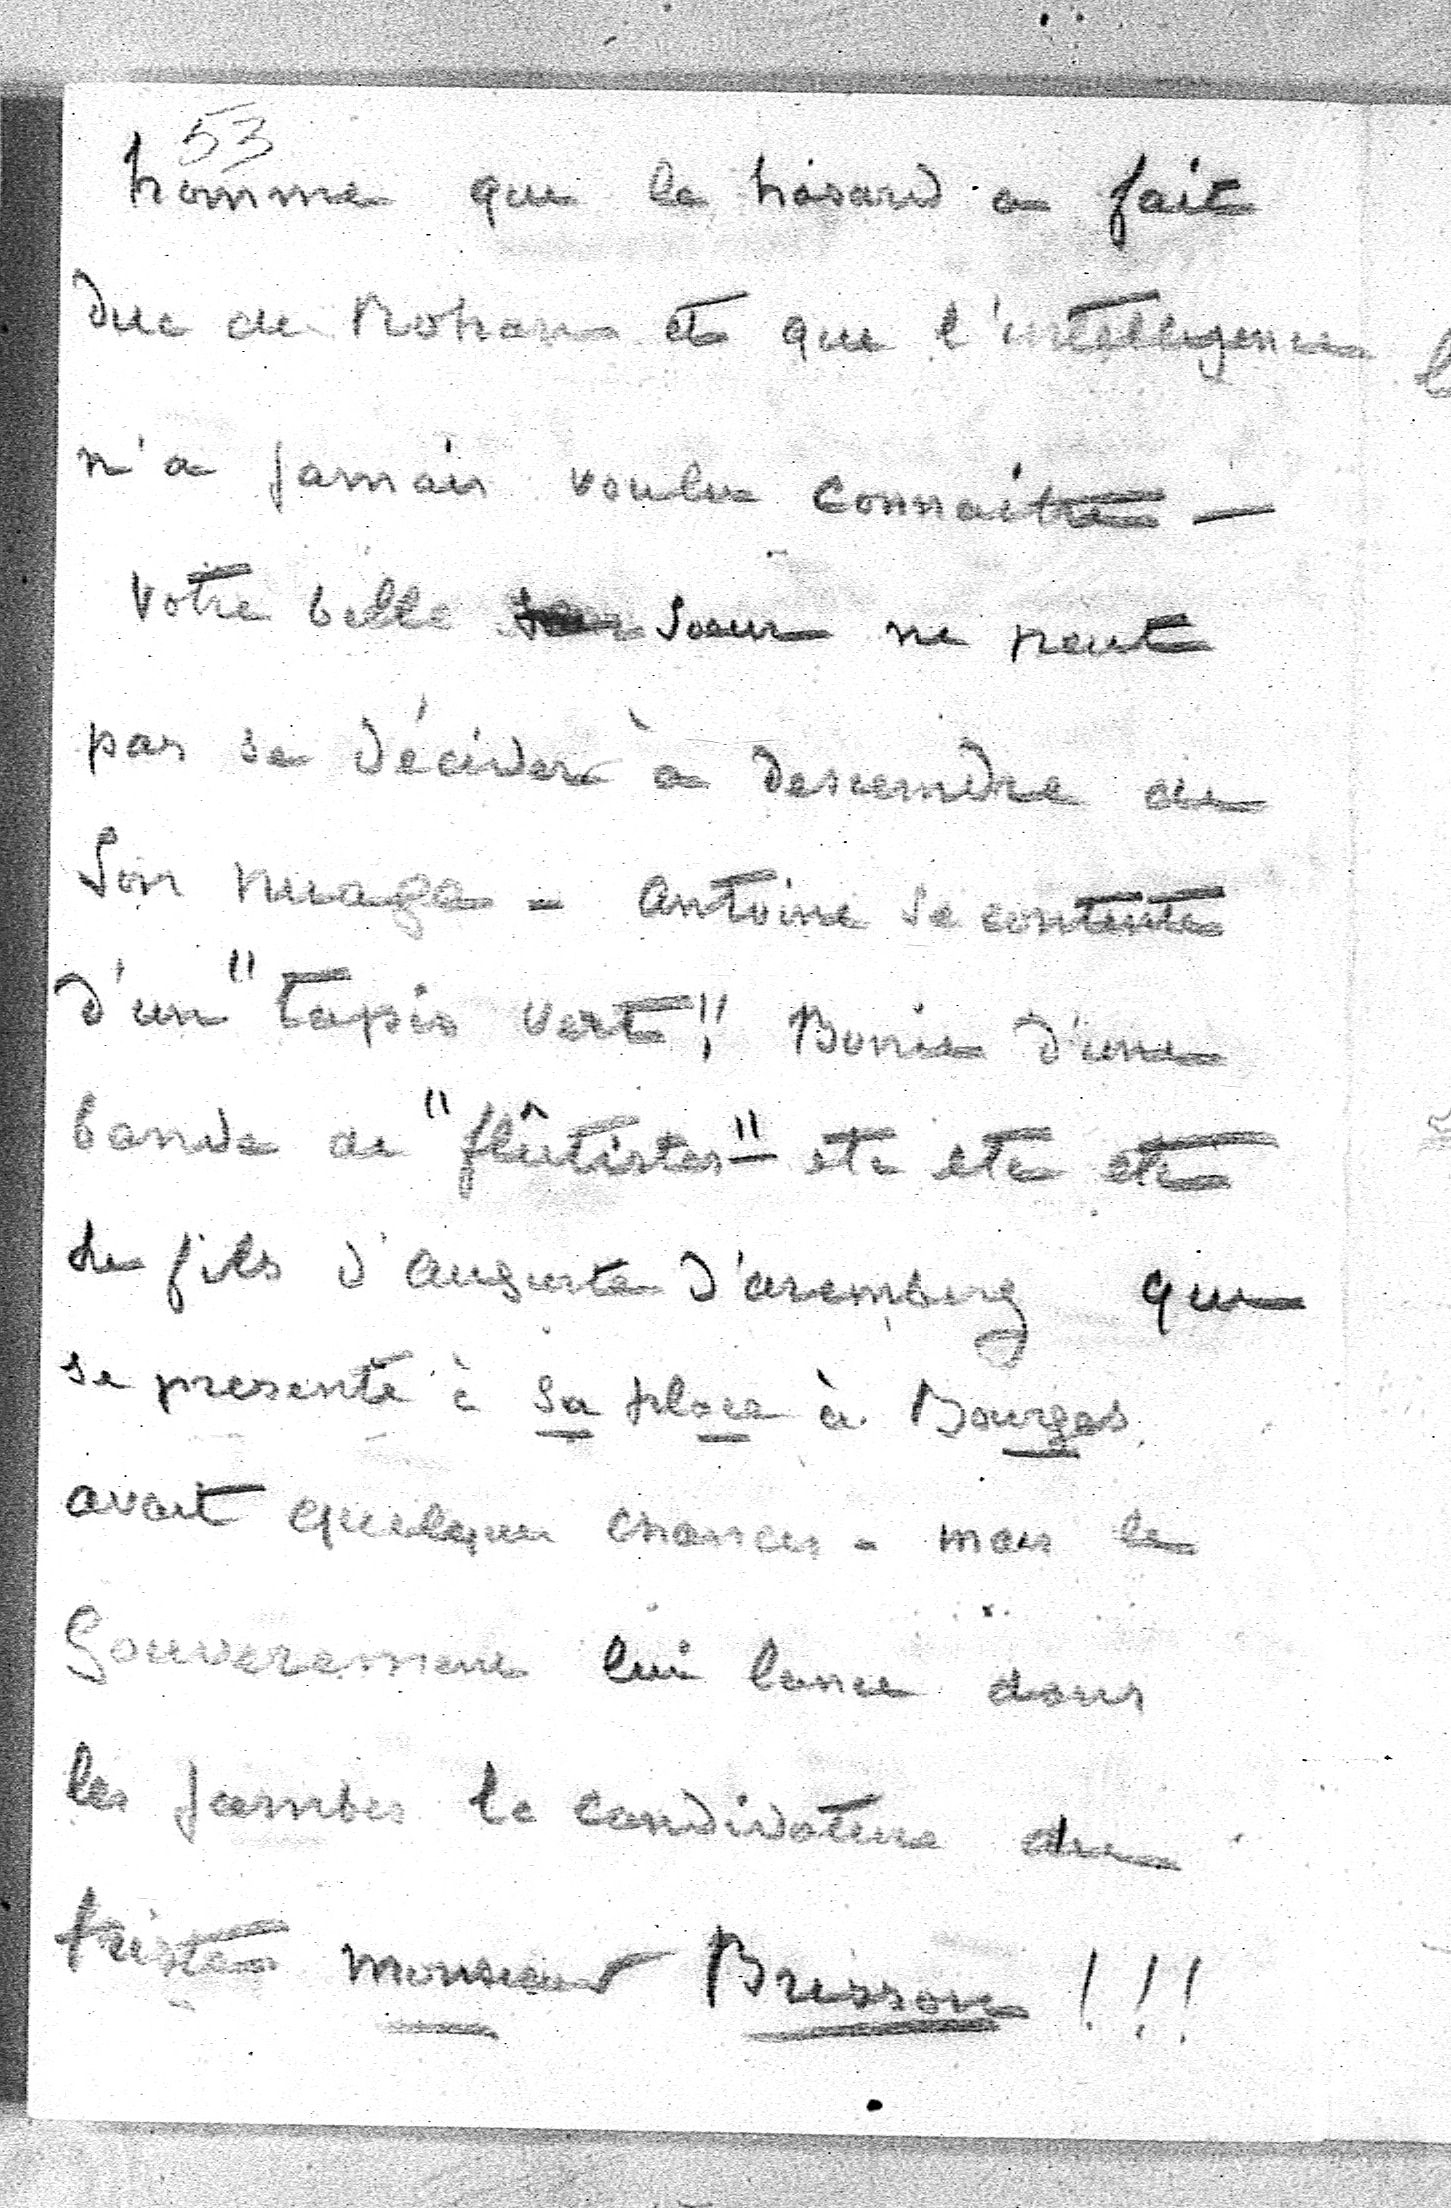 53
homme que le hasard a fait
duc de Rohan et que l'intelligence
n'a jamais voulu connaitre —
Votre belle soeur ne peut
pas se décider à descendre de
Son nuage - Antoine se contente
d'un "tapis vert"! Bonie d'une
bande de "flûtistes" - etc etc etc
Le fils d'Auguste d'Aremberg qui
se presente à sa place à Bourges
avait quelques chances - mais le
Gouvernement lui lance dans
les jambes la candidature du
triste monsieur Brisson !!!